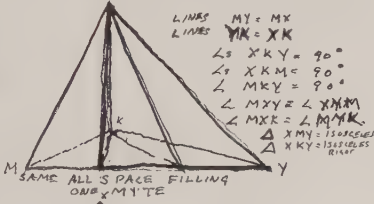 LINES MY = MX
LINES YK = XK
∠s XKY = 90°
∠s XKM = 90°
∠ MKY = 90°
∠ MXY = ∠
∠ MXK = ∠ MYK.
△ XMY = ISOSCELES
△ XKY = ISOSCELES
RIGHT
K
M
Y
SAME ALL SPACE FILLING
ONE X MYTE